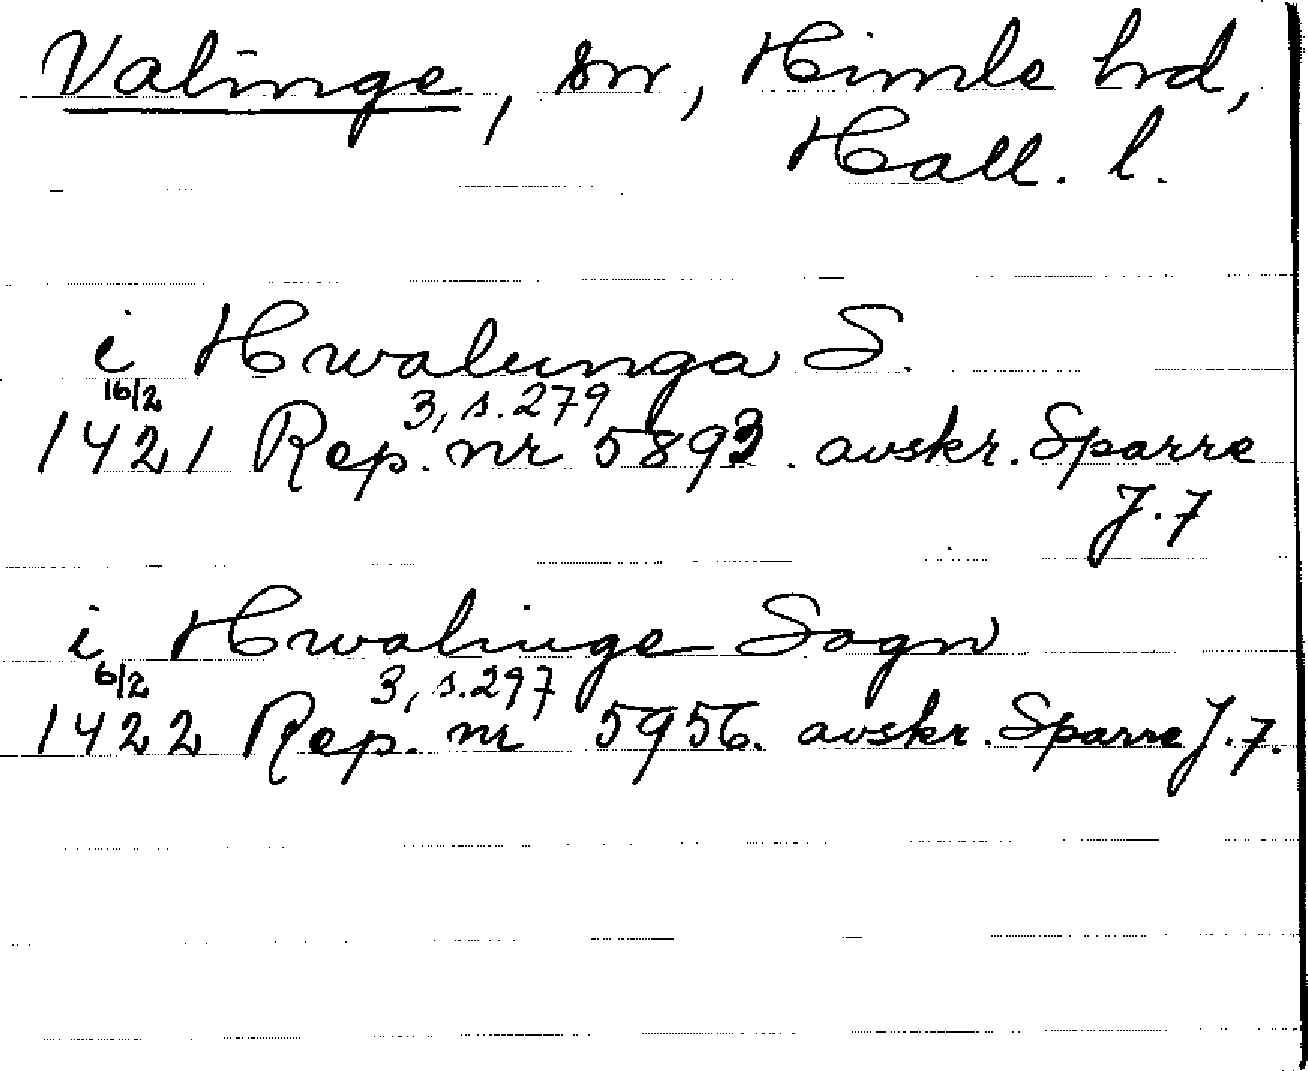 Valinge, sn, Himle hrd,
Hall. l.
i Hwalunga S.
16/2 3, s. 279
1421 Rep. nr 5893. avskr. Sparre
J. 7
i Hwalinge Sogn
6/2 3, s. 297
1422 Rep. nr 5956. avskr. Sparre J. 7.